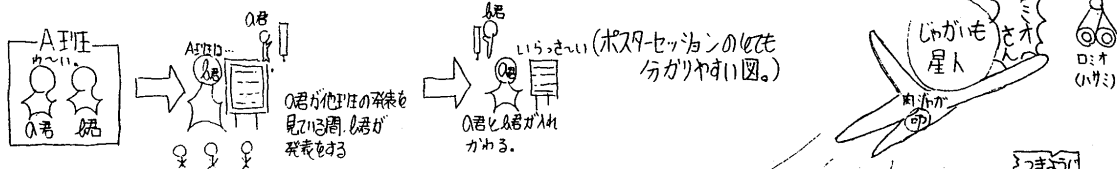 A班
わ〜い。
a君
b君
A班は…
b君
a君
a君が他班の発表を
見ている間、b君が
発表をする
b君
a君
いらっさ〜い
a君とb君が入れ
かわる。
(ポスターセッションのとても
分かりやすい図。)
じゃがいも
星人
ミオ
さん
肉ジャガ
印
ロミオ
(ハサミ)
つまようじ